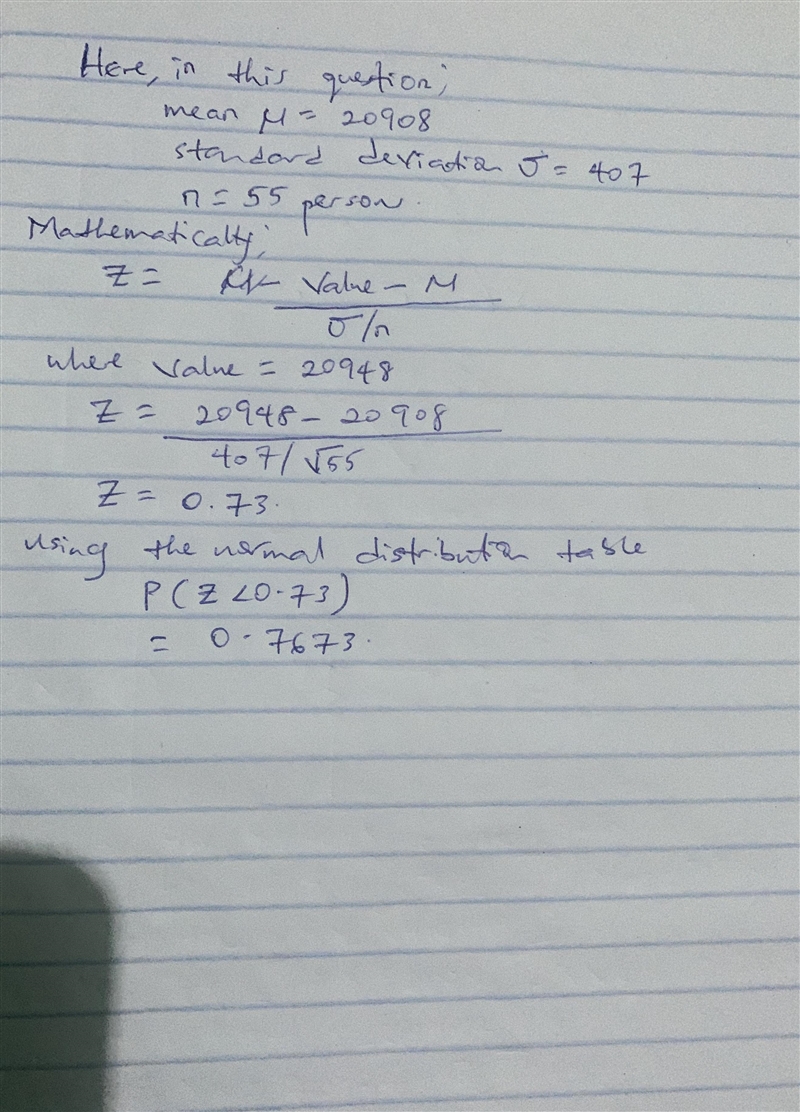 Here, in this question;
mean μ = 20908
standard deviation σ = 407
n = 55 person.
Mathematically;
Z = Value - μ
σ/n
where value = 20948
Z = 20948 - 20908
407/√55
Z = 0.73.
Using the normal distribution table
P(Z<0.73)
= 0.7673.